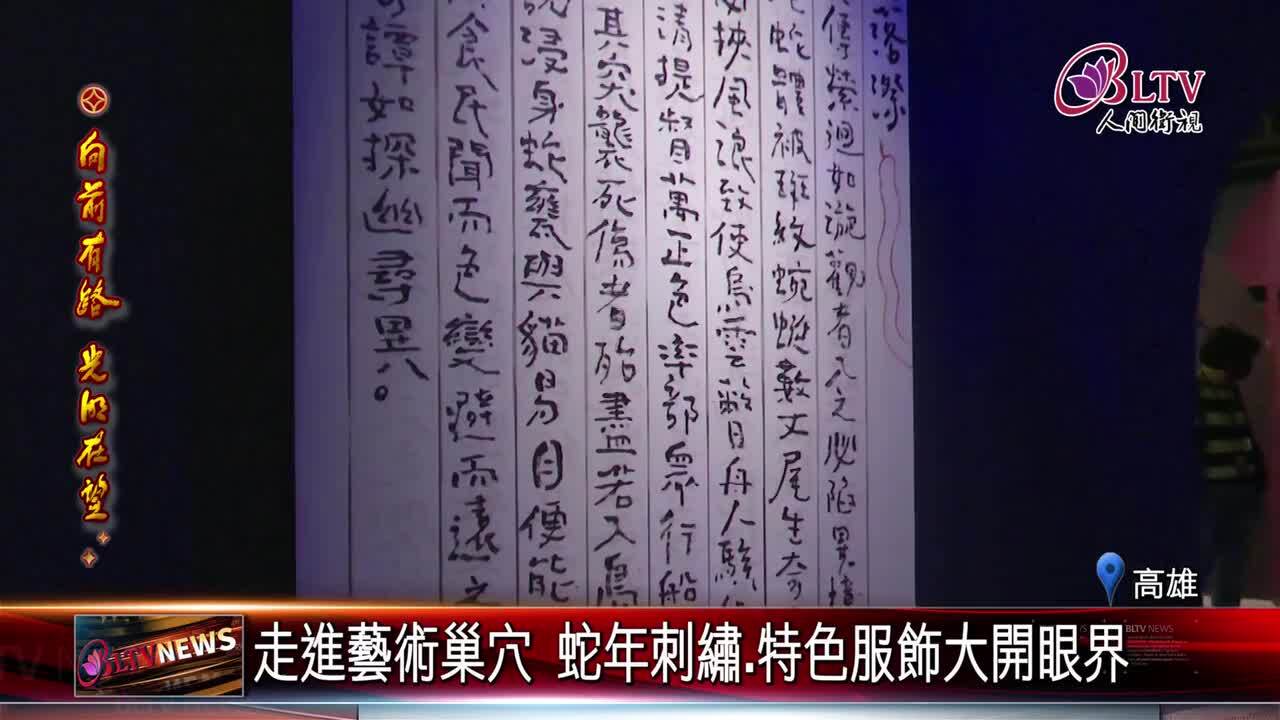 BLTV
人間衛視
向前有路 光明在望
落漈
縈迴如漩觀者入之必陷異
蛇體被斑紋蜿蜒數丈尾生奇
挾風浪致使烏雲蔽日舟人駭
清提督萬正色率部眾行船
其穴襲死傷者殆盡若入鳥
浸身蛇甕與貓易目便能
食民聞而色變避而遠之
譚如探幽尋異。
高雄
BLTV NEWS
走進藝術巢穴 蛇年刺繡.特色服飾大開眼界
BLTV NEWS